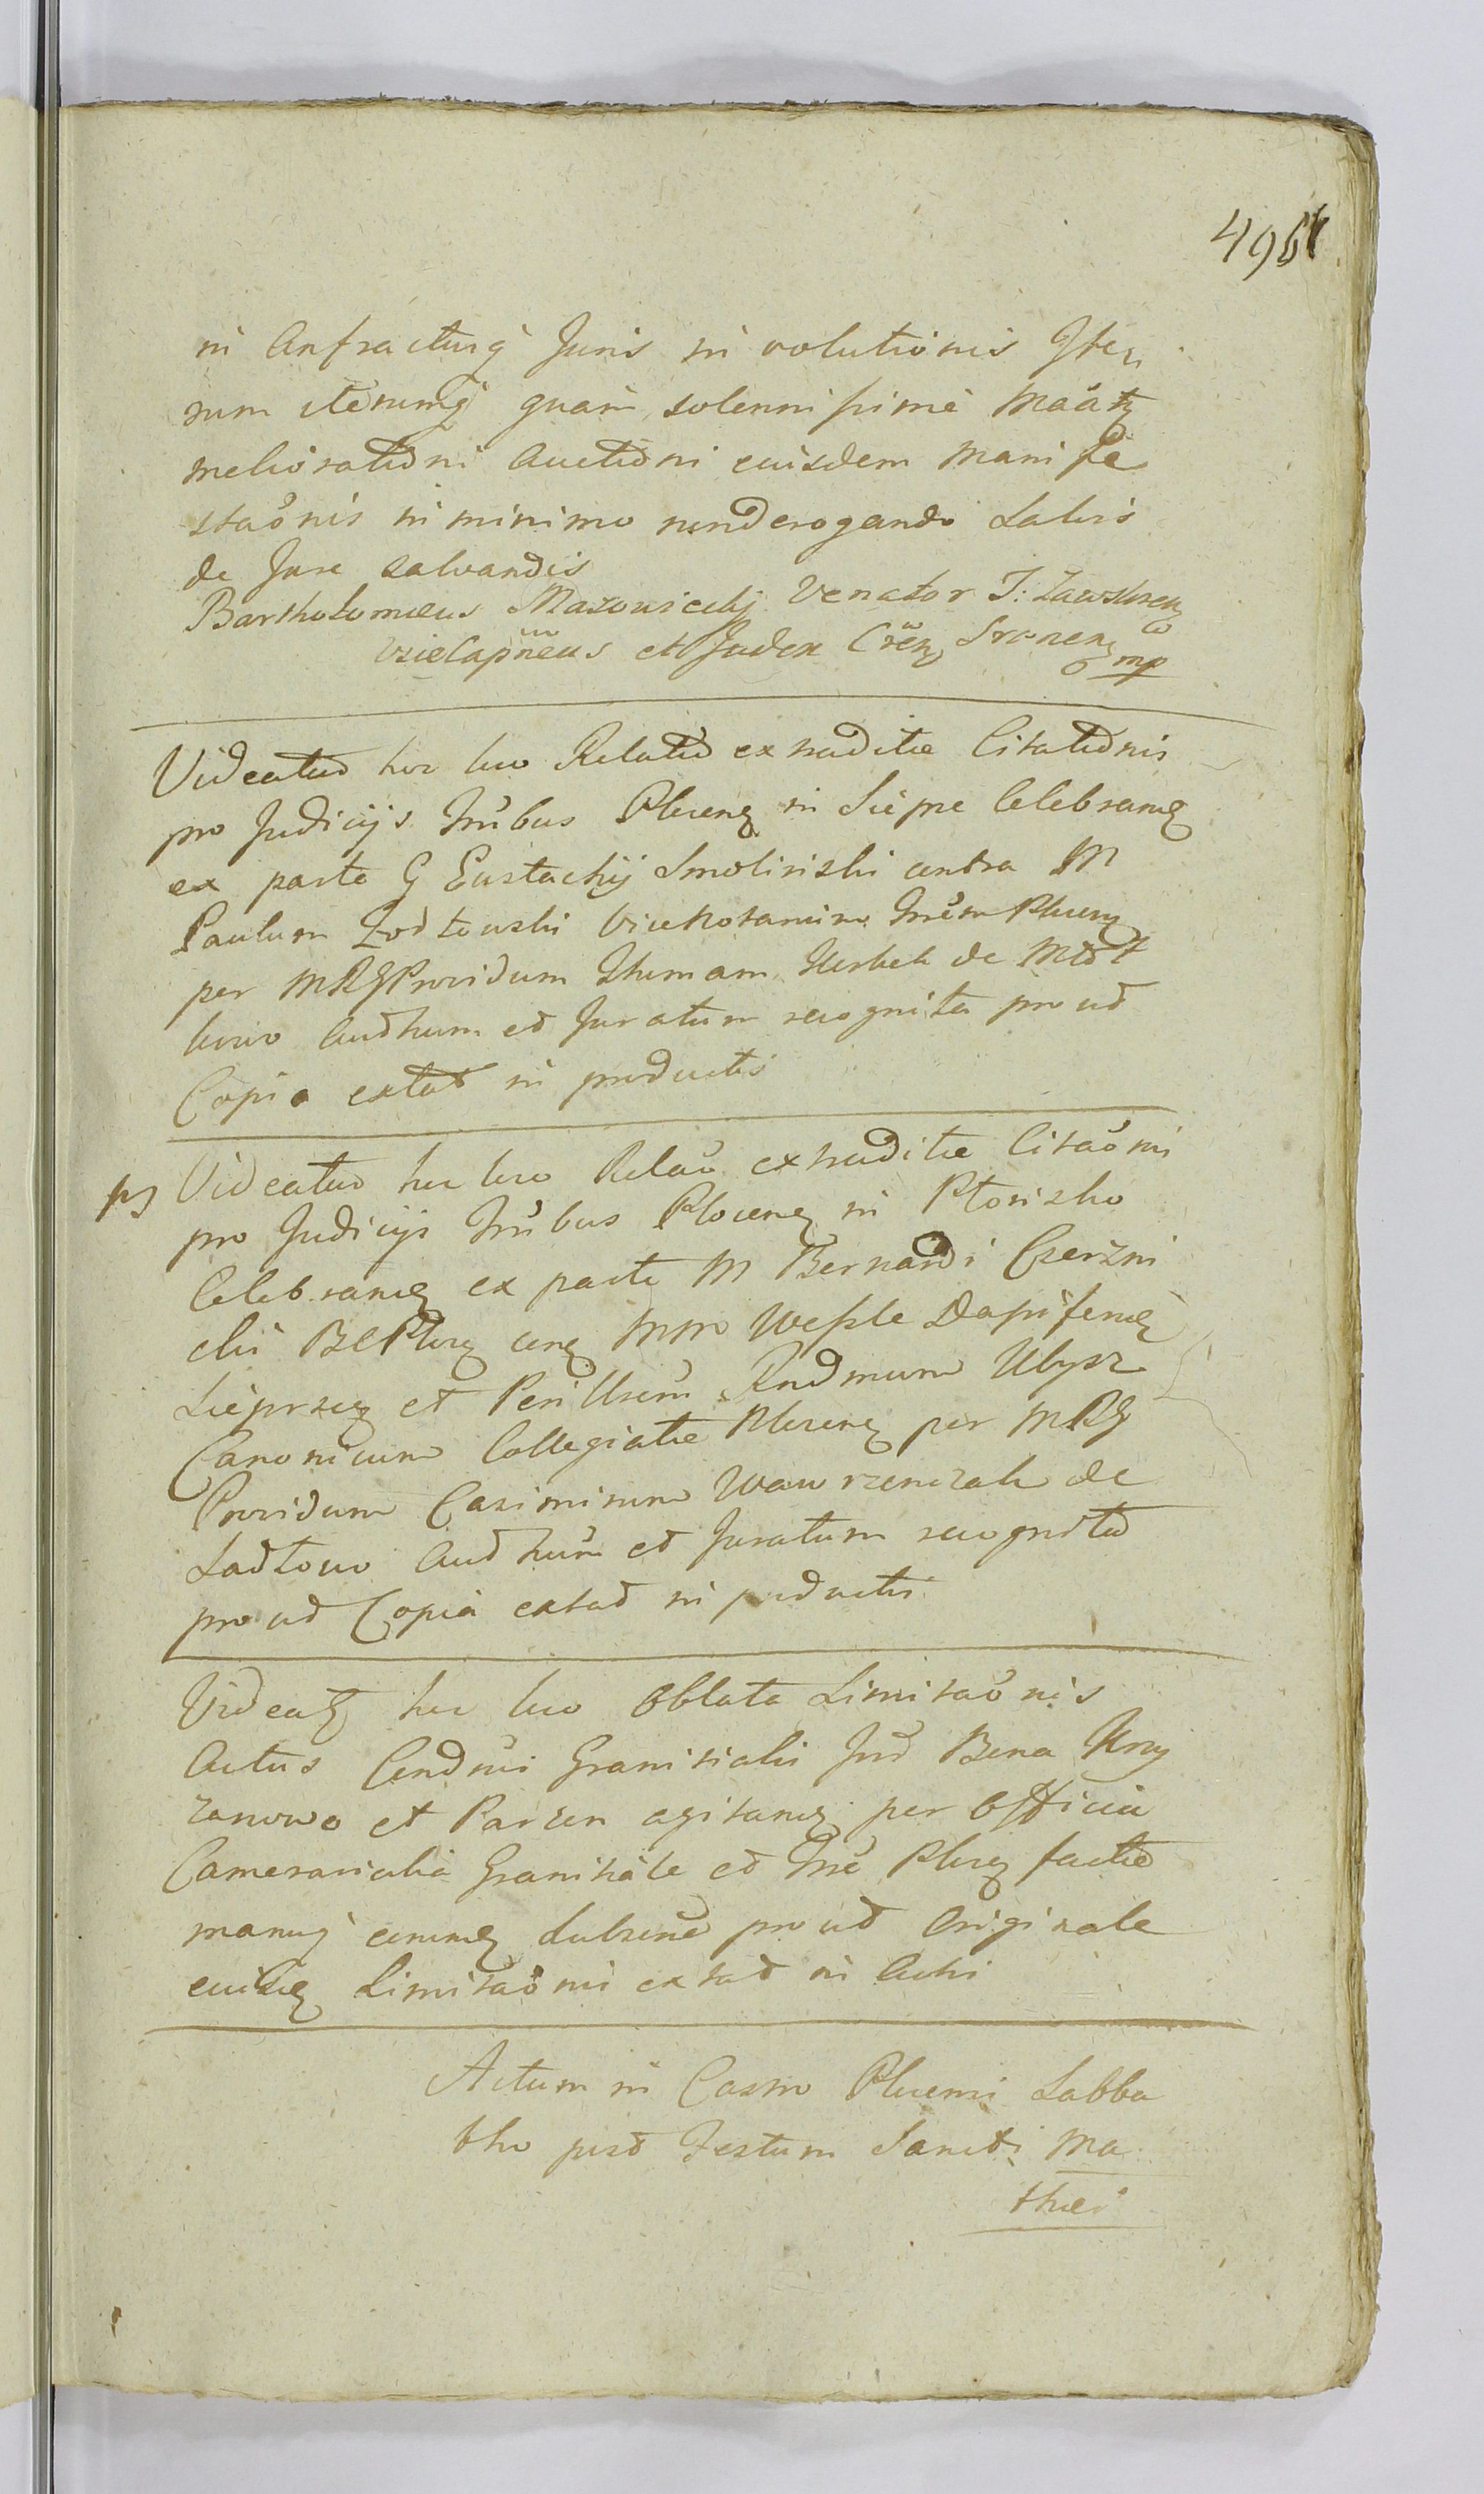 496
in Anfractusq Juris in volutionis Ite,
rum iterumq quam solennissime Maatz
meliorationi Auctioni eiusdem Manife
staonis in minimo nonderogando Salvis
de Jure salvandis
Bartholomæus Mazowiecky Venator T: Zawskren
ViceCapneus et Judex Cren Sronen mp
Videatur hic loco Relatio extraditæ Citationis
pro Judicijs Trubus Plocen in Siepre Celebran
ex parte G Eustachij Smolinski contra M
Paulum Zodtowski ViceNotarium Trrem Plocen
per MRG Providum Thomam Herbek de
Authum et Juratum recognita prout
Copia extat in productis
ps Videatur hic loco Relao extraditæ Citaonis
pro Judicijs Trubus Plocen in Ptonsko
Celebran ex parte M Bernardi Czerzni
cki con MM Wessle Dapiferu
et Perillrem Rndmum Ubysz
Canonicum Collegiatæ Plocen per MRG
Providum Casimirum Wawrzenczak de
Ladtowo Authum et Juratum recognita
prout Copia extat in productis
Videatz hic loco Oblata Limitaonis
Actus Condni Granitialis Int Bona Krzy
zanowo et Parzen agitan per Officia
Camerarialia Granitiale et Trre Plocen factæ
manuq eorum Subscriæ prout Originale
eiusd Limitaonis extat in Actis
Actum in Castro Plocensi Sabba
tho post Festum Sancti Ma
thæi